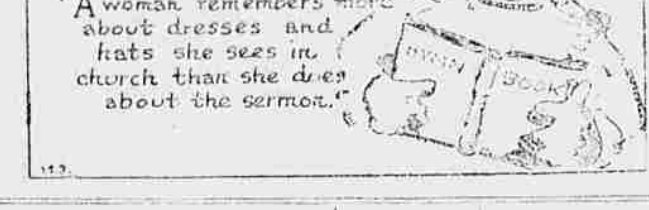 "A woman remembers more
about dresses and
hats she sees in
church than she does
about the sermon."
HYMN BOOK